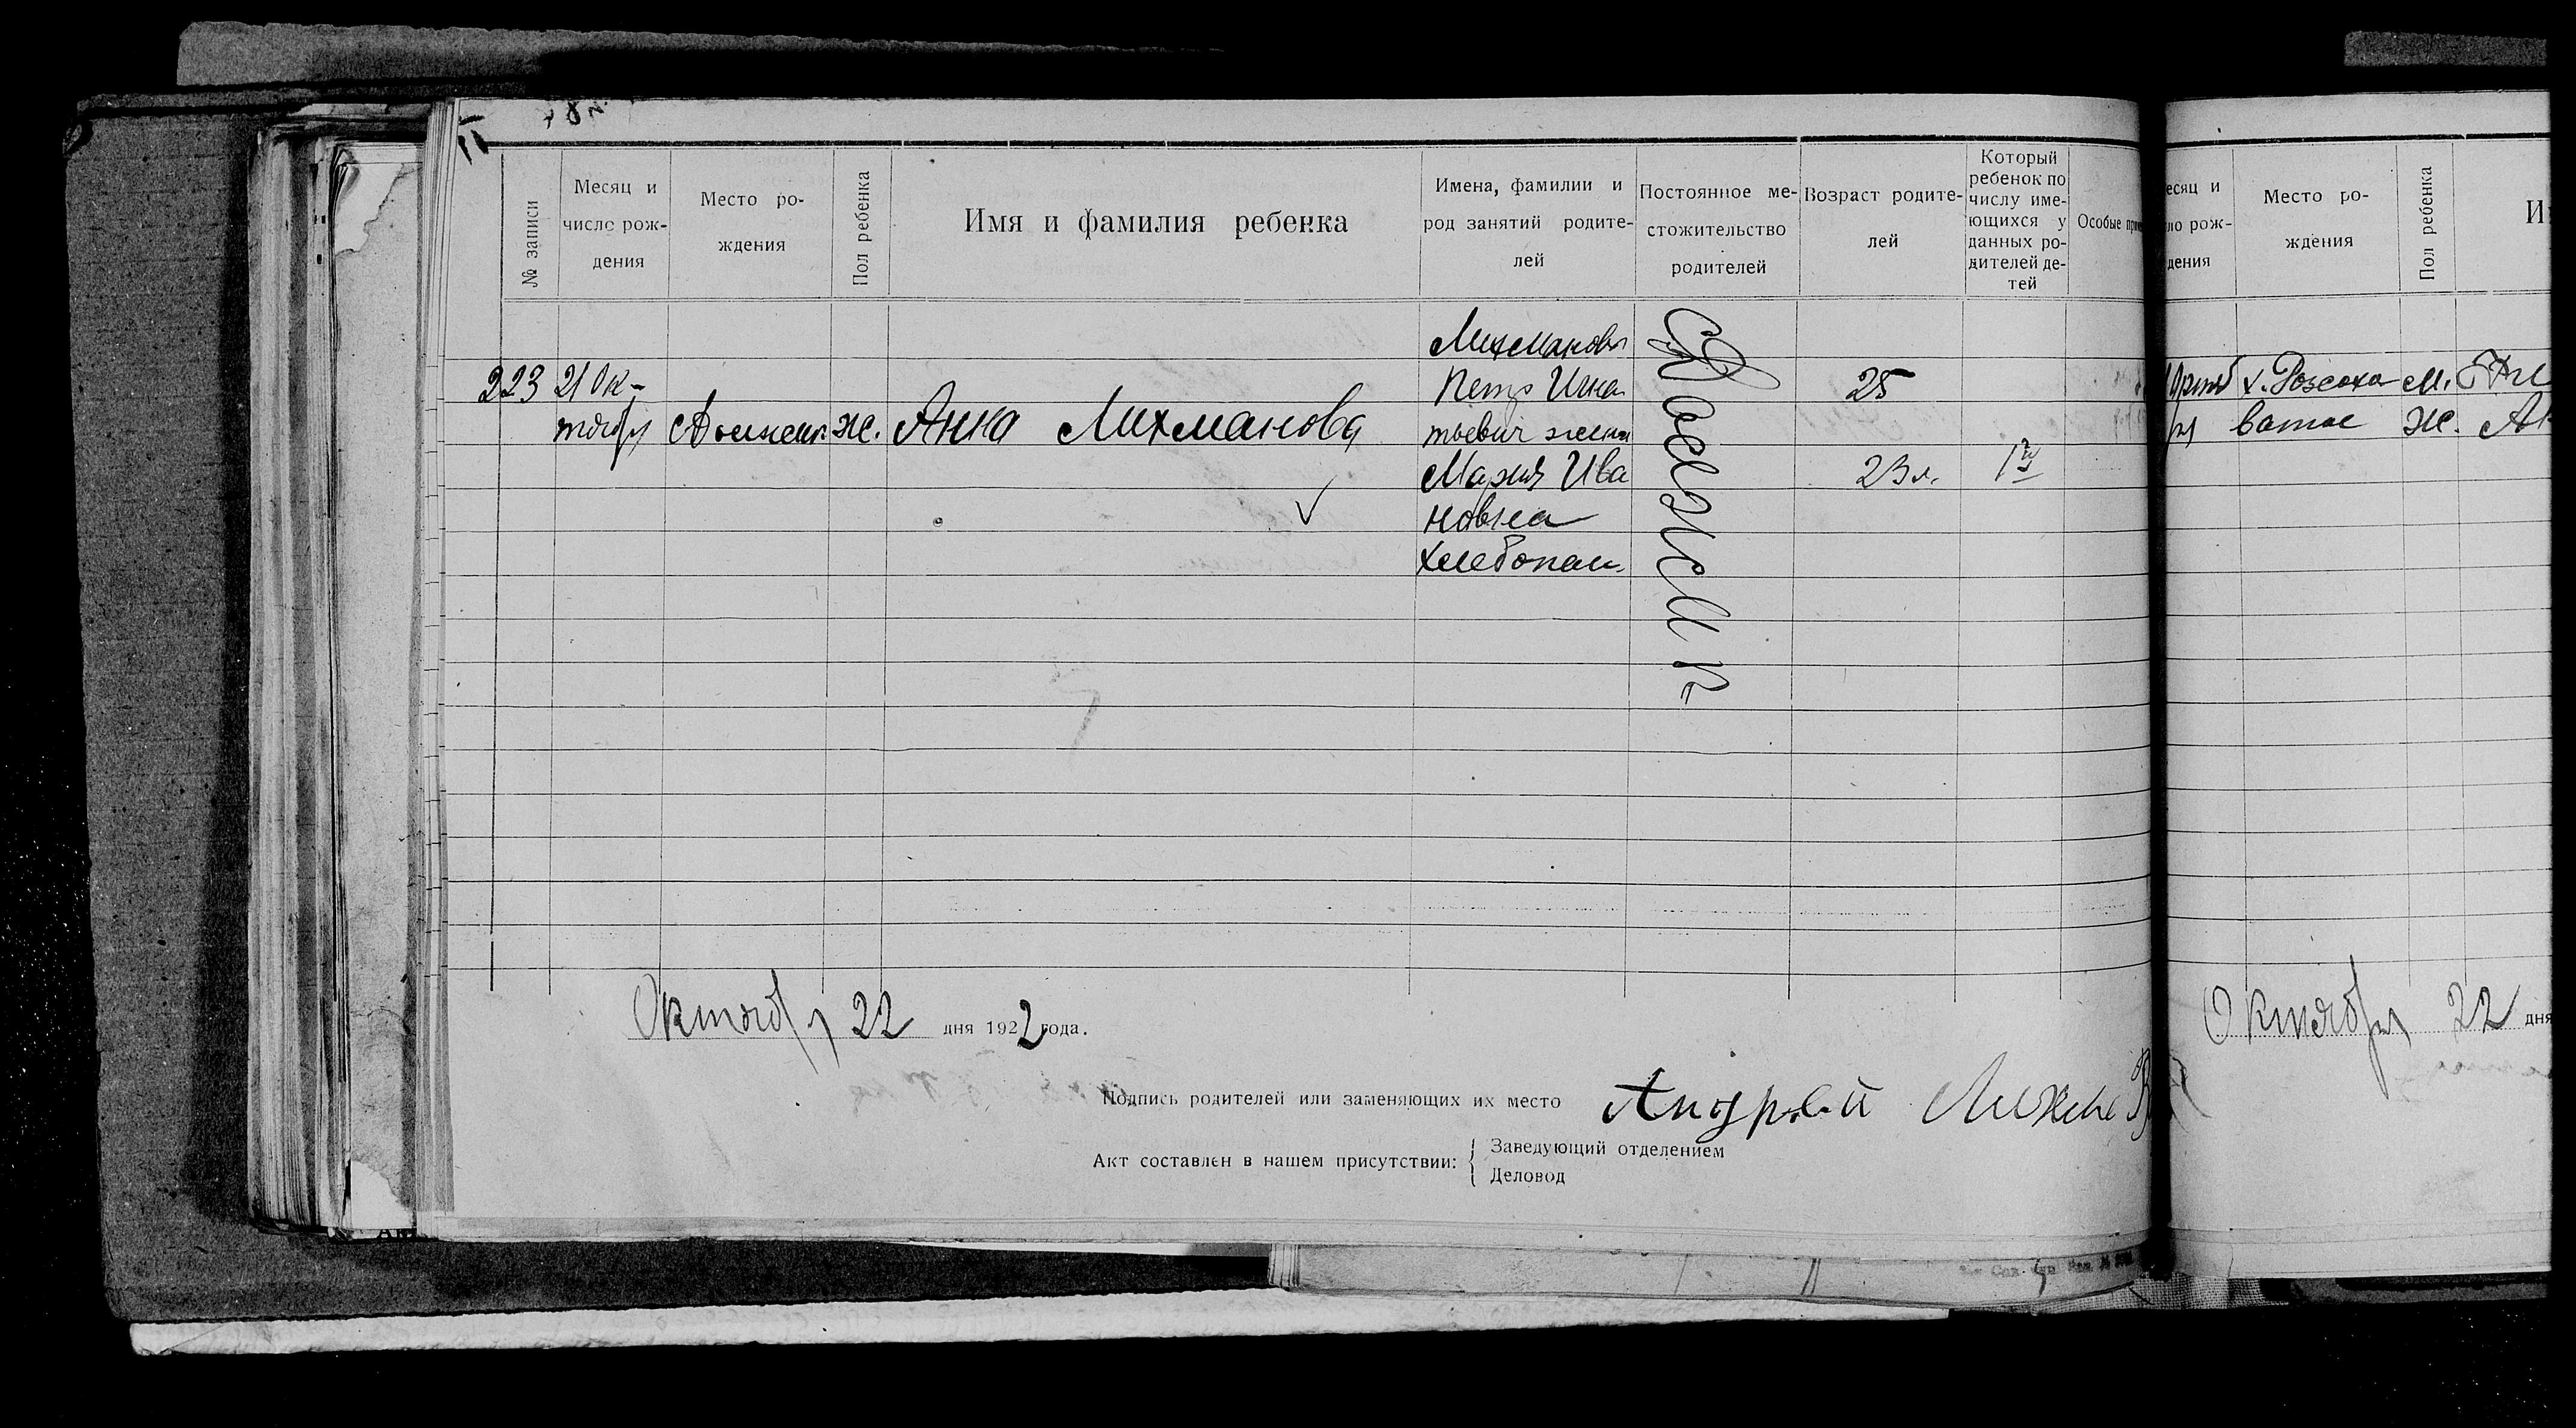 № записи
Месяц и
число рож-
дения
Место ро-
ждения
Пол ребенка
Имя и фамилия ребенка
Имена, фамилии и
род занятий родите-
лей
Постоянное ме-
стожительство
родителей
Возраст родите-
лей
Который
ребенок по
числу име-
ющихся у
данных ро-
дителей де-
тей
Особые
223
21 Ок-
тября
ж.
Анна Лихманова
Лихмановы
Петр Игна
тьевич жена
Мария Ива
новна
хлебопаш.
25
23 л.
1й
Октября 22 дня 1922 года.
Подпись родителей или заменяющих их место
Андрей
Акт составлен в нашем присутствии:
Заведующий отделением
Деловод
есяц и
ло рож-
дения
Место ро-
ждения
Пол ребенка
х. Розсоха
ватое
м.
ж.
Октября 22 дня